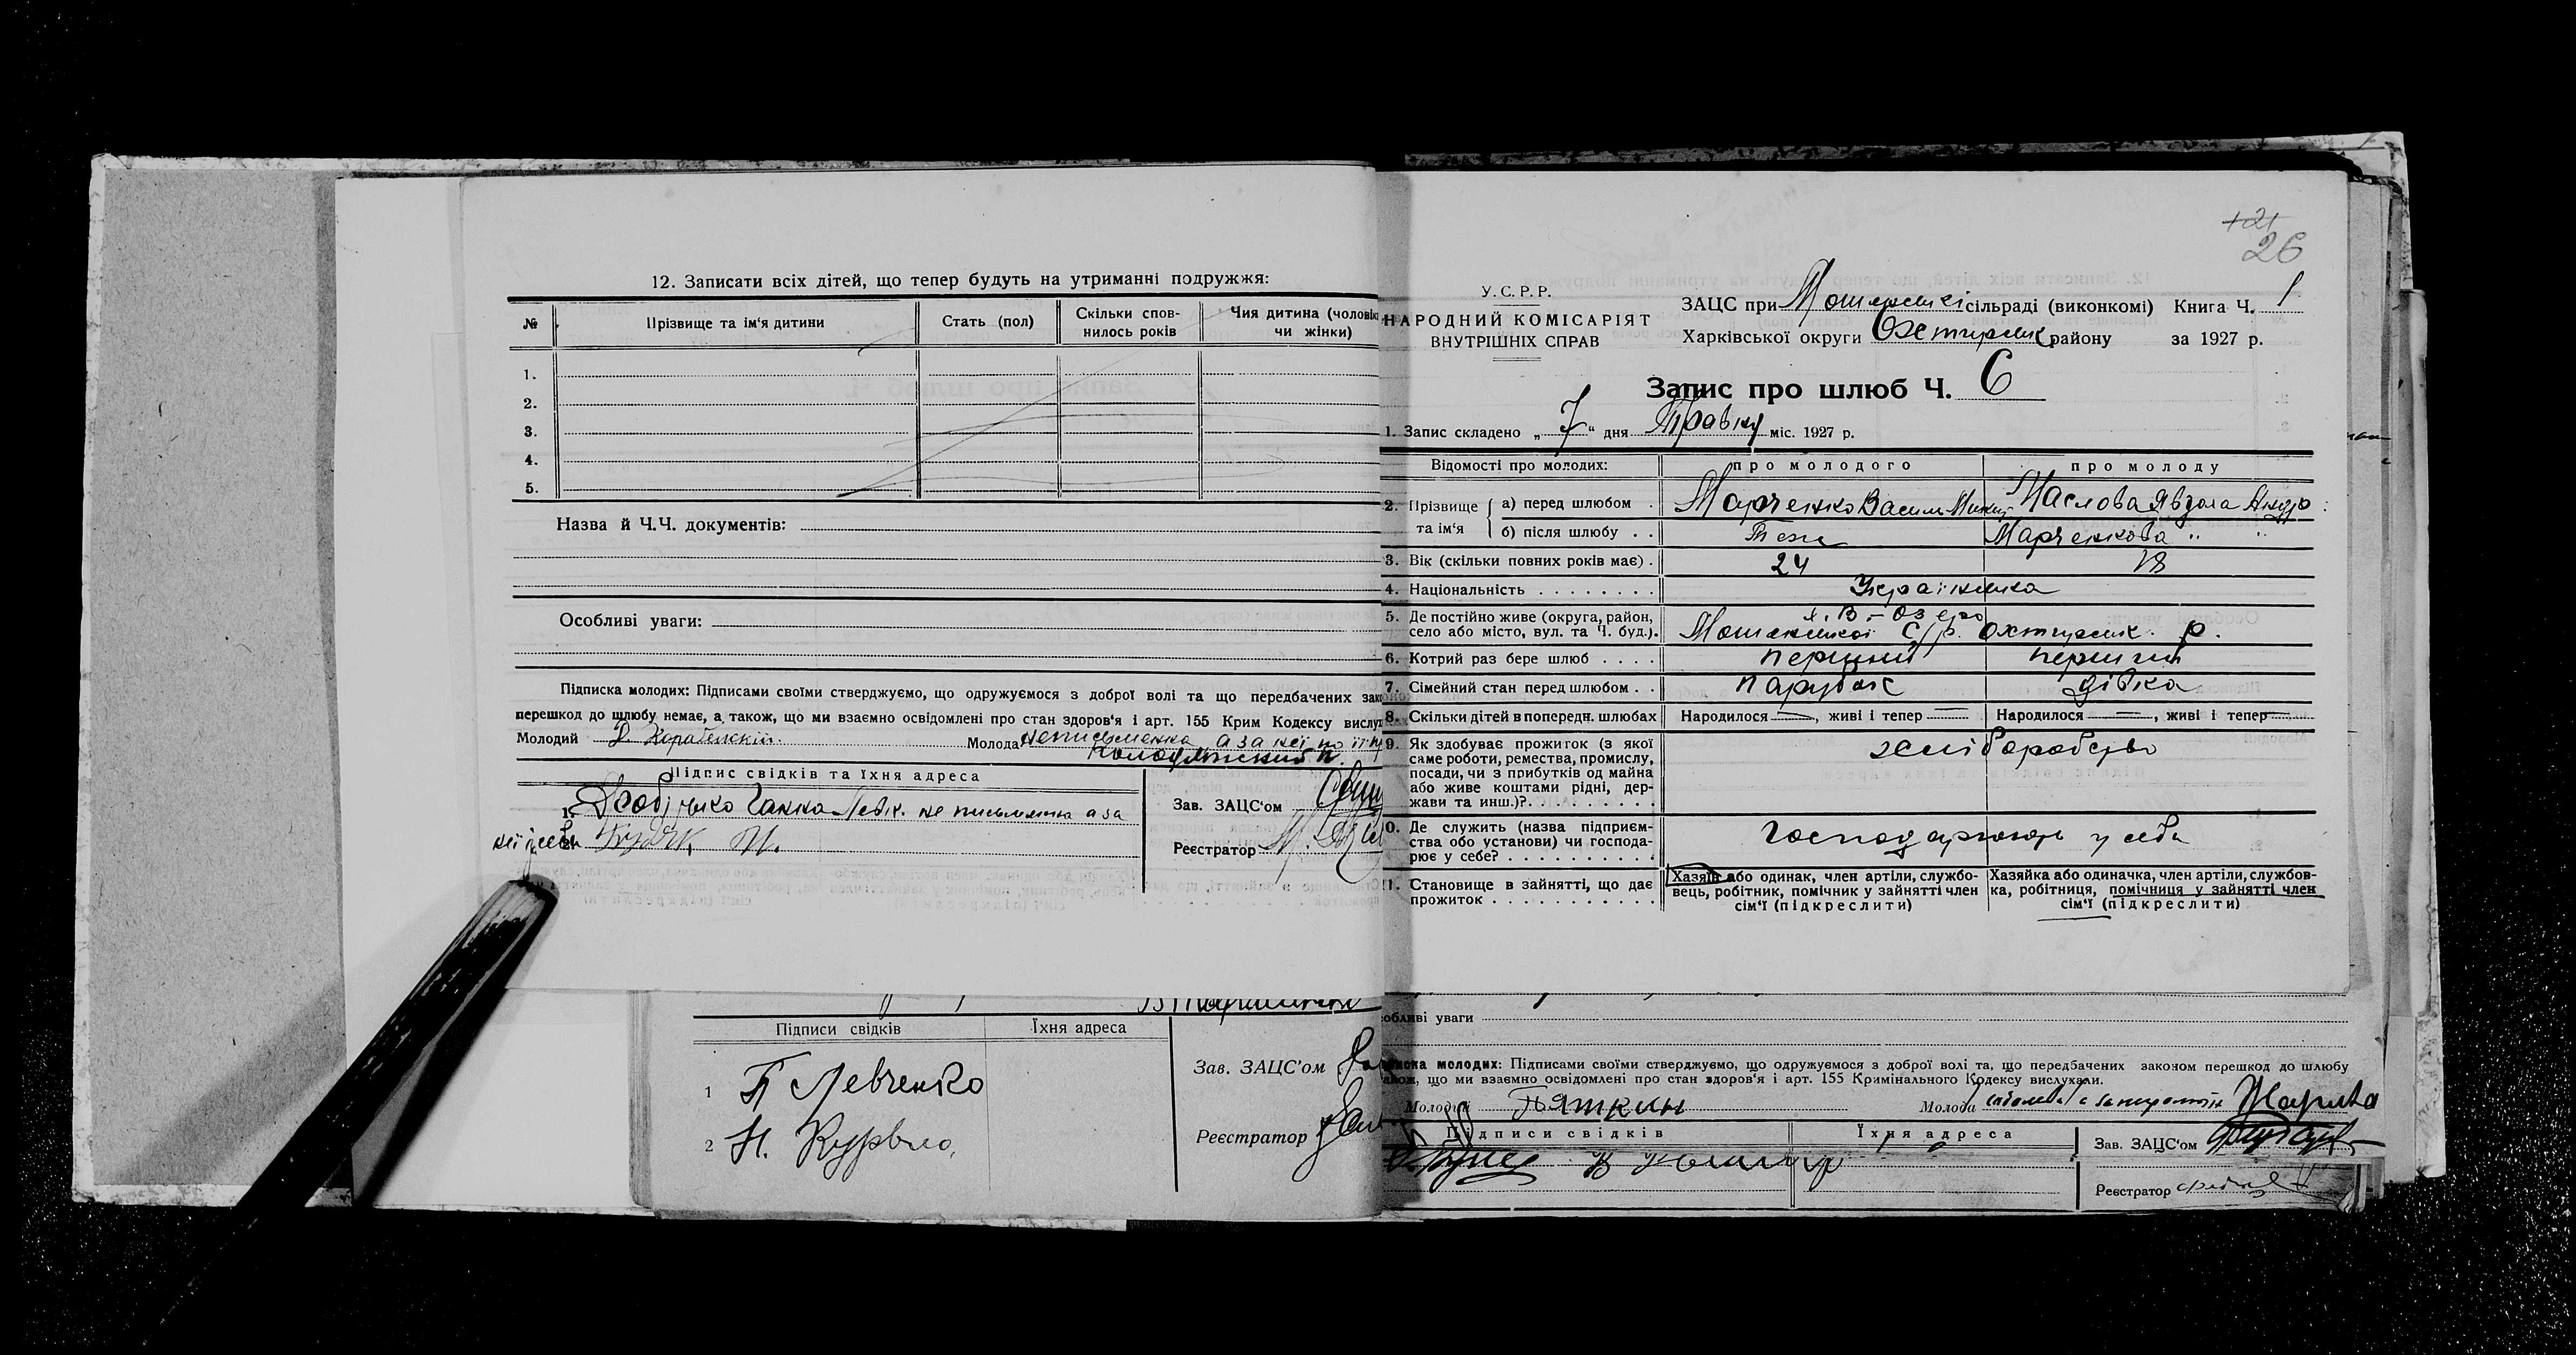 12. Записати всіх дітей, що тепер будуть на утриманні подружжя:
№ Прізвище та ім'я дитини Стать (пол) Скільки спов-
нилось років Чия дитина (чоловік
чи жінки)
1.
2.
3.
4.
5.
Назва й Ч.Ч. документів:
Особливі уваги:
Підписка молодих: Підписами своїми стверджуємо, що одружуємося з доброї волі та що передбачених зак
перешкод до шлюбу немає, а також, що ми взаємно освідомлені про стан здоров'я і арт. 155 Крим Кодексу вислу
Молодий Молода неписьменна а за неї по її
Підпис свідків та їхня адреса
1. Ганна не письменна а за
неї
Зав. ЗАЦС'ом
Реєстратор
Підписи свідків Їхня адреса
1 П Левченко
2 Н.
Зав. ЗАЦС'ом
Реєстратор
+21
26
У.С.Р.Р.
НАРОДНИЙ КОМІСАРІЯТ
ВНУТРІШНІХ СПРАВ
ЗАЦС при сільраді (виконкомі) Книга Ч. 1
Харківської округи Охтирськ району за 1927 р.
Запис про шлюб Ч. 6
1. Запис складено „ 7 “ дня Травня міс. 1927 р.
Відомості про молодих: про молодого про молоду
2. Прізвище та ім'я а) перед шлюбом . Марченко Васил Маслова Явдоха Андр
б) після шлюбу . . Теж Марченкова " "
3. Вік (скільки повних років має) . 24 18
4. Національність . . . . . . . . Українська
5. Де постійно живе (округа, район,
село або місто, вул. та Ч. буд.). х. В-Озеро
С/р. Охтирськ. р.
6. Котрий раз бере шлюб . . . . перший перший
7. Сімейний стан перед шлюбом . . парубок дівка
8. Скільки дітей в попередн. шлюбах Народилося —, живі і тепер — Народилося —, живі і тепер —
9. Як здобуває прожиток (з якої
саме роботи, ремества, промислу,
посади, чи з прибутків од майна
або живе коштами рідні, дер-
жави та инш.)? . . . . . . . . .
0. Де служить (назва підприєм-
ства обо установи) чи господа-
рює у себе? . . . . . . . . . . Господарюють у себе
11. Становище в зайнятті, що дає
прожиток . . . . . . . . . . .
Хазяїн або одинак, член артіли, службо-
вець, робітник, помічник у зайнятті член
сім'ї (підкреслити)
Хазяйка або одиначка, член артіли, службов-
ка, робітниця, помічниця у зайнятті член
сім'ї (підкреслити)
обливі уваги
иска молодих: Підписами своїми стверджуємо, що одружуємося з доброї волі та, що передбачених законом перешкод до шлюбу
акож, що ми взаємно освідомлені про стан здоров'я і арт. 155 Кримінального Кодексу вислухали.
Молодий Пяткин Молода
Підписи свідків Їхня адреса
Зав. ЗАЦС'ом
Реєстратор